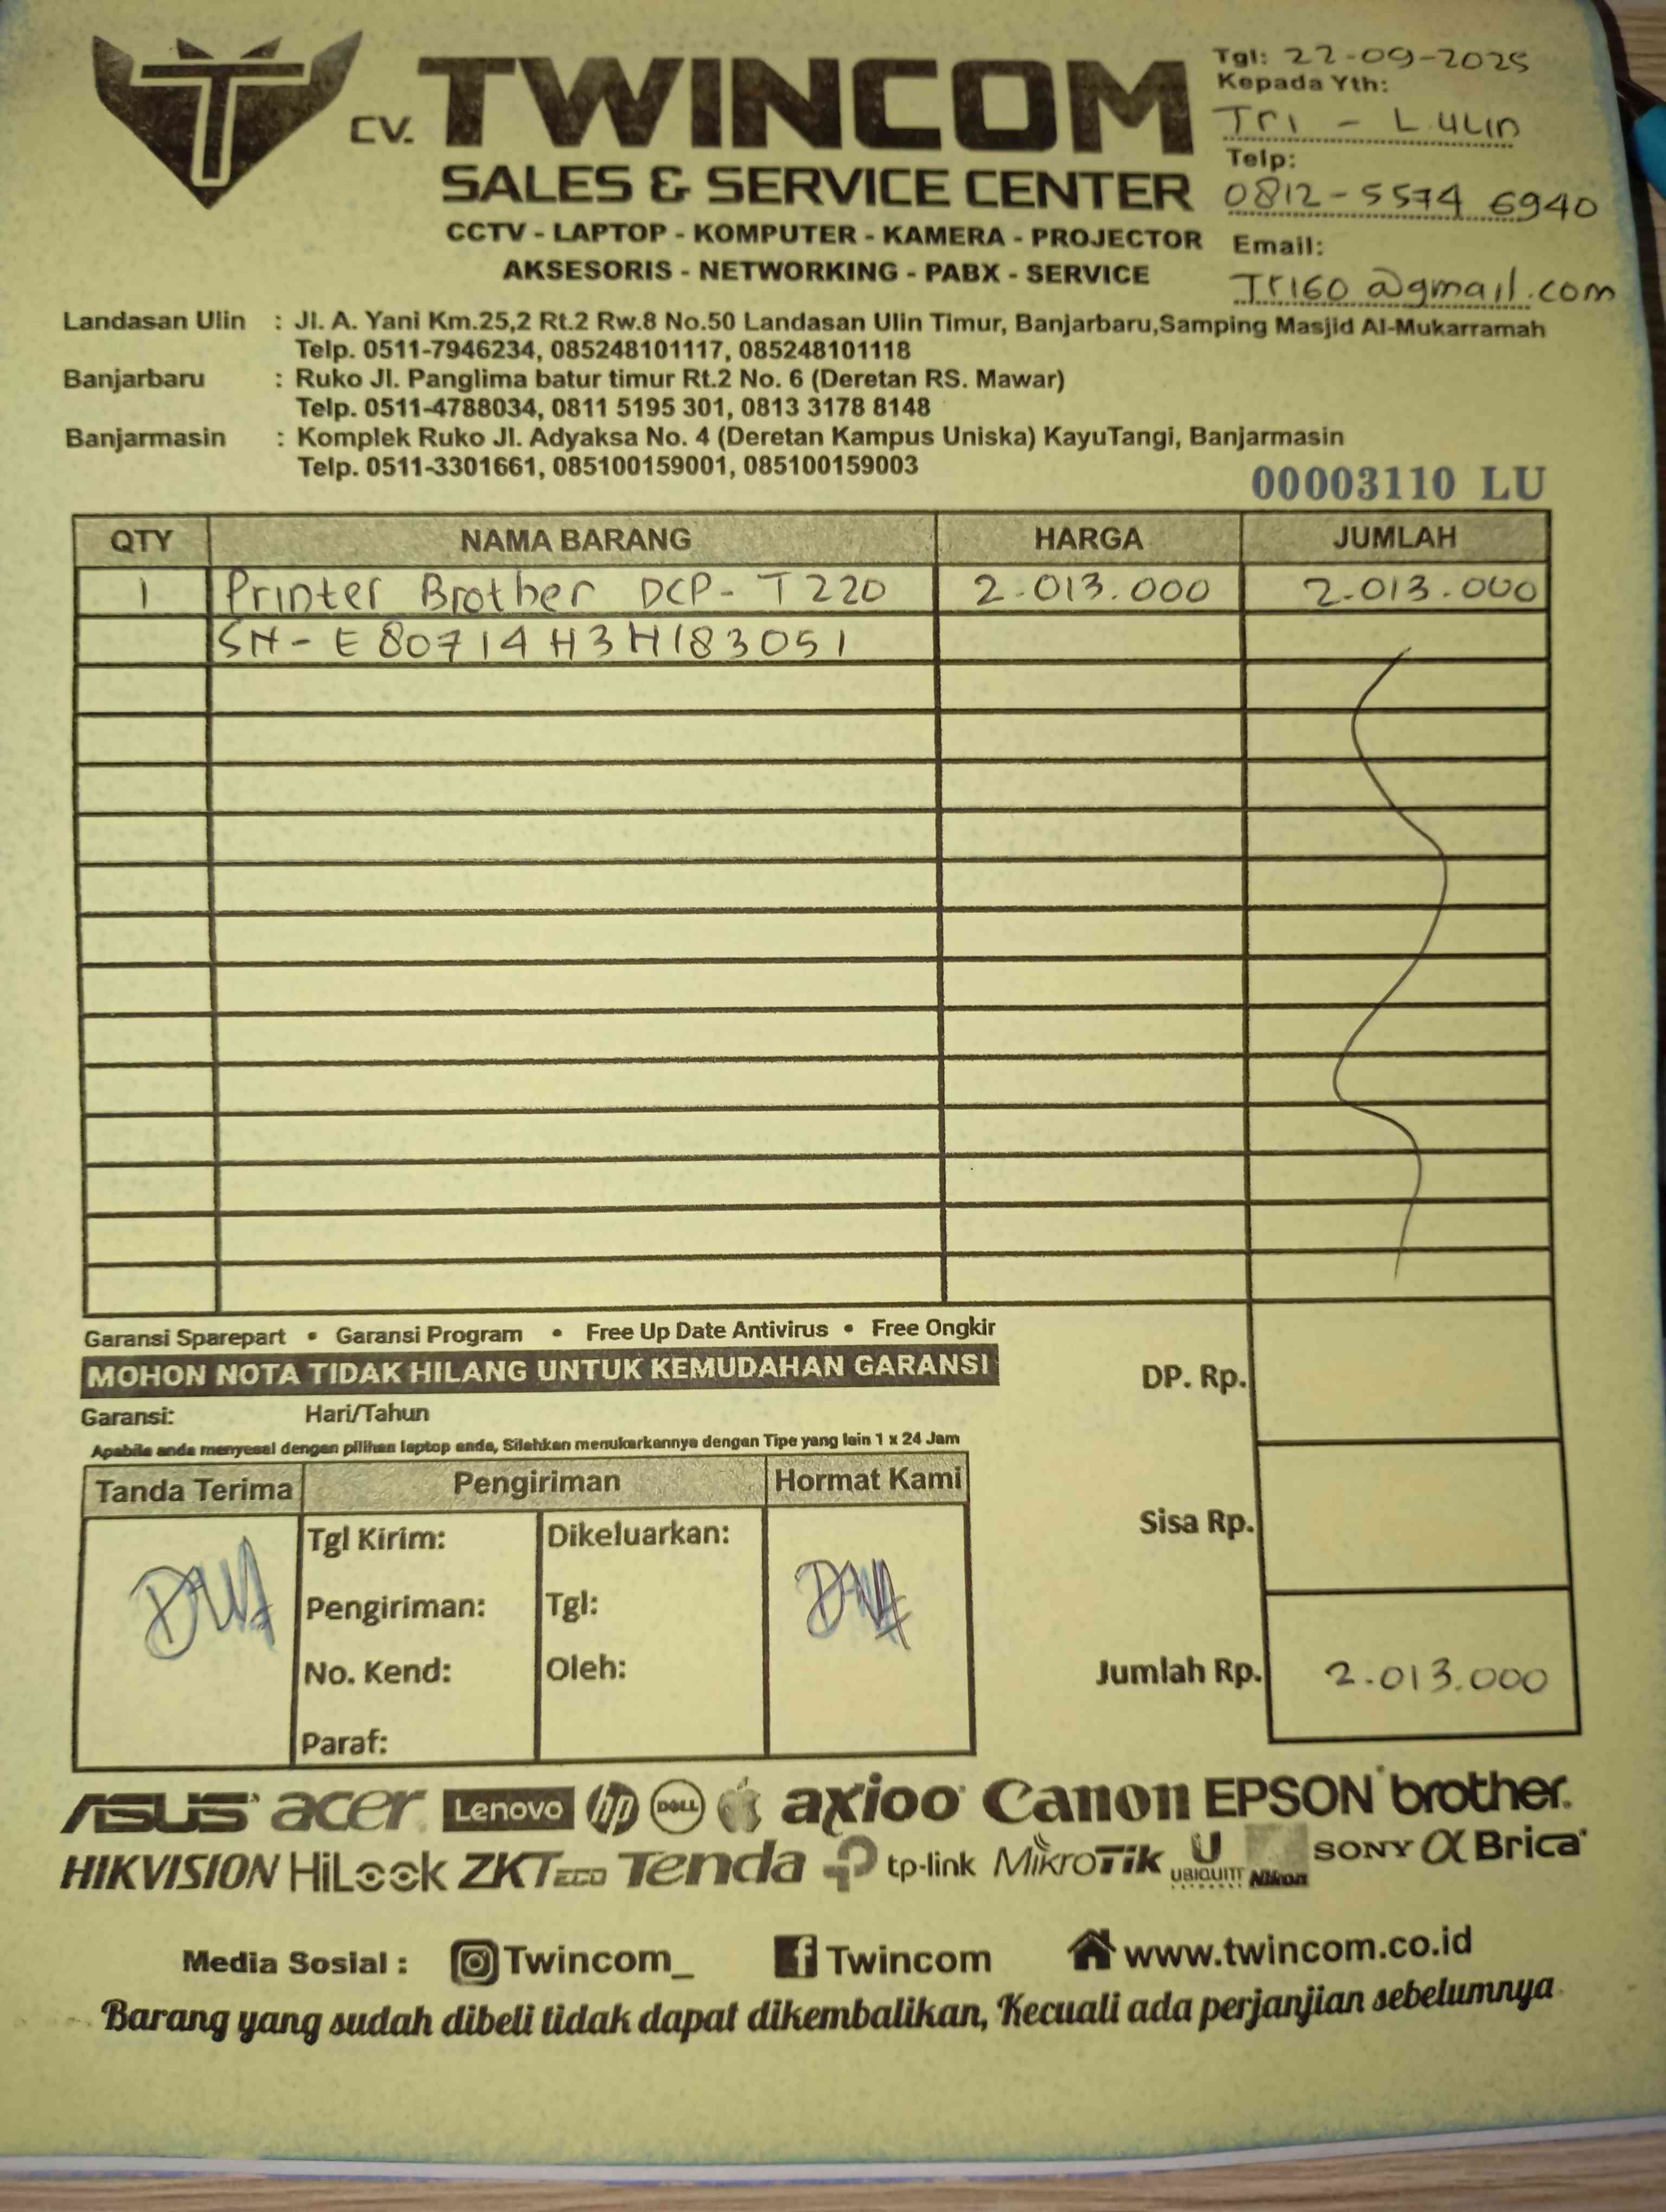 CV. TWINCOM
SALES & SERVICE CENTER
CCTV - LAPTOP - KOMPUTER - KAMERA - PROJECTOR
AKSESORIS - NETWORKING - PABX - SERVICE
Tgl: 22-09-2025
Kepada Yth:
Tri - L.ulin
Telp:
0812-5574 6940
Email:
Tri60@gmail.com
Landasan Ulin : Jl. A. Yani Km.25,2 Rt.2 Rw.8 No.50 Landasan Ulin Timur, Banjarbaru,Samping Masjid Al-Mukarramah
Telp. 0511-7946234, 085248101117, 085248101118
Banjarbaru : Ruko Jl. Panglima batur timur Rt.2 No. 6 (Deretan RS. Mawar)
Telp. 0511-4788034, 0811 5195 301, 0813 3178 8148
Banjarmasin : Komplek Ruko Jl. Adyaksa No. 4 (Deretan Kampus Uniska) KayuTangi, Banjarmasin
Telp. 0511-3301661, 085100159001, 085100159003
00003110 LU
QTY NAMA BARANG HARGA JUMLAH
1 Printer Brother DCP-T220 2.013.000 2.013.000
SN-E80714H3H183051
Garansi Sparepart • Garansi Program • Free Up Date Antivirus • Free Ongkir
MOHON NOTA TIDAK HILANG UNTUK KEMUDAHAN GARANSI
Garansi: Hari/Tahun
Apabila anda menyesal dengan pilihan laptop anda, Silahkan menukarkannya dengan Tipe yang lain 1 x 24 Jam
DP. Rp.
Sisa Rp.
Jumlah Rp. 2.013.000
Tanda Terima Pengiriman Hormat Kami
Tgl Kirim: Dikeluarkan:
Pengiriman: Tgl:
No. Kend: Oleh:
Paraf:
ASUS acer Lenovo hp DELL axioo Canon EPSON brother.
HIKVISION HiLook ZKTECO Tenda tp-link MikroTik U UBIQUITI Nikon SONY α Brica
Media Sosial : Twincom_ Twincom www.twincom.co.id
Barang yang sudah dibeli tidak dapat dikembalikan, Kecuali ada perjanjian sebelumnya